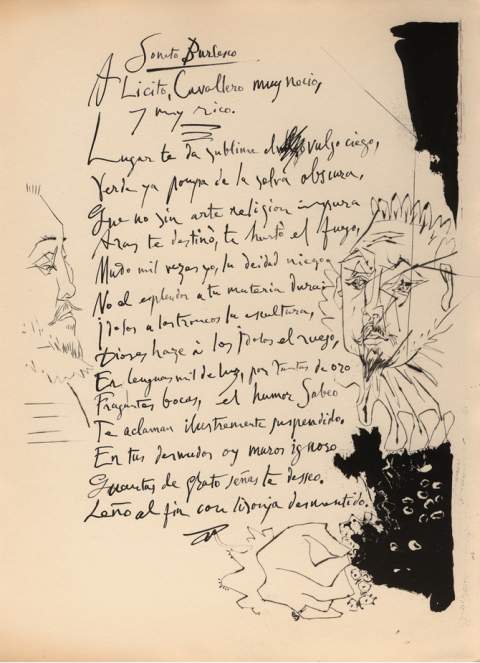 Soneto Burlesco
A Licito, Cavallero muy nocio,
y muy rico.
Lugar te da sublime el vulgo ciego,
Verde ya pompa de la selva obscura,
Que no sin arte religion impura
Aras te destinò, te hurtò el fuego,
Mudo mil vezes yo, la deidad niego
No el esplendor a tu materia dura;
Idolos a los troncos la escultura,
Dioses haze à los Idolos el ruego,
En lenguas mil de luz, por tantas de oro
Fragantes bocas, el humor Sabeo
Te aclaman ilustremente suspendido.
En tus desnudos oy muros ignoro
Quantas de grato señas te desseo.
Leño al fin con lisonja desmentido.